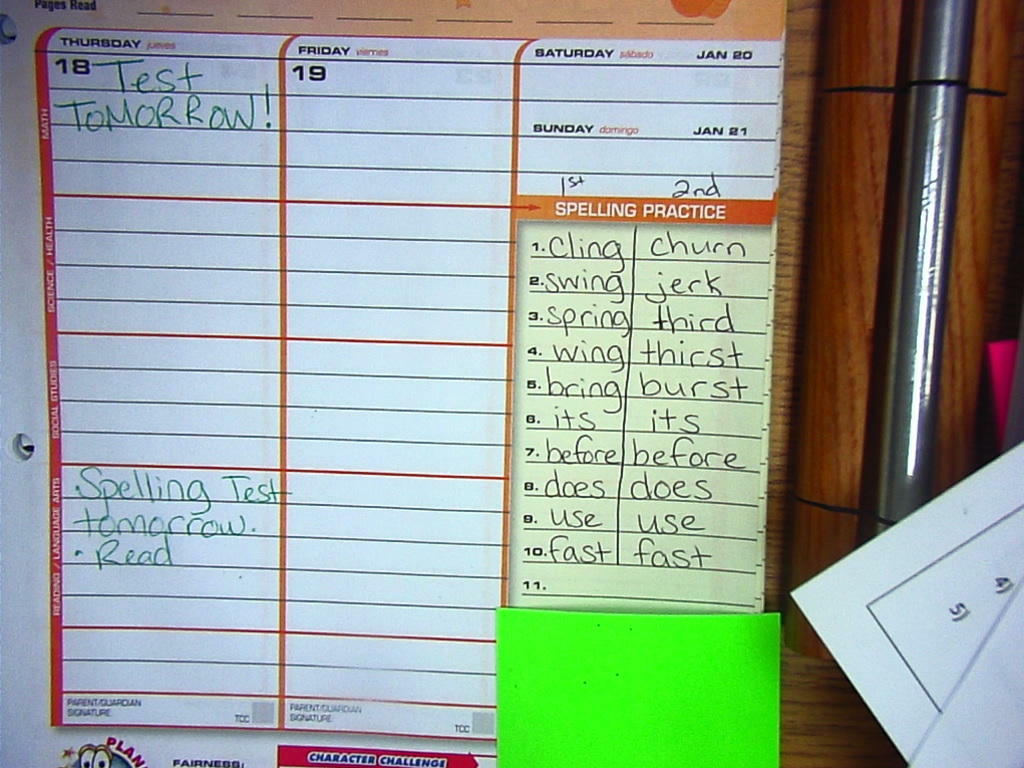 Pages Read
THURSDAY jueves
18 Test
TOMORROW!
MATH
SCIENCE / HEALTH
SOCIAL STUDIES
READING / LANGUAGE ARTS
• Spelling Test
tomorrow.
• Read
PARENT/GUARDIAN
SIGNATURE
TCC
FRIDAY viernes
19
PARENT/GUARDIAN
SIGNATURE
TCC
SATURDAY sábado JAN 20
SUNDAY domingo JAN 21
1st 2nd
SPELLING PRACTICE
1. cling churn
2. swing jerk
3. spring third
4. wing thirst
5. bring burst
6. its its
7. before before
8. does does
9. use use
10. fast fast
11.
FAIRNESS:
CHARACTER CHALLENGE
4)
5)